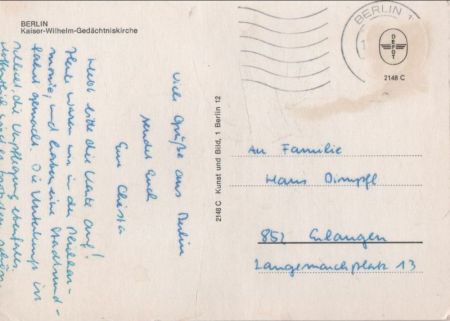 BERLIN
Kaiser-Wilhelm-Gedächtniskirche
BERLIN 1
DEFOT
2148 C
Viele Grüße aus Berlin
sendet Euch
Eure Christa
Hebt bitte die Karte auf!
Heute waren wir in der Philhar-
monie, und haben eine Stadtrund-
fahrt gemacht. Die Unterkunft ist
die Verpflegung ebenfalls
2148 C Kunst und Bild, 1 Berlin 12
An Familie
Hans Dimpfl
852 Erlangen
Langemarckplatz 13